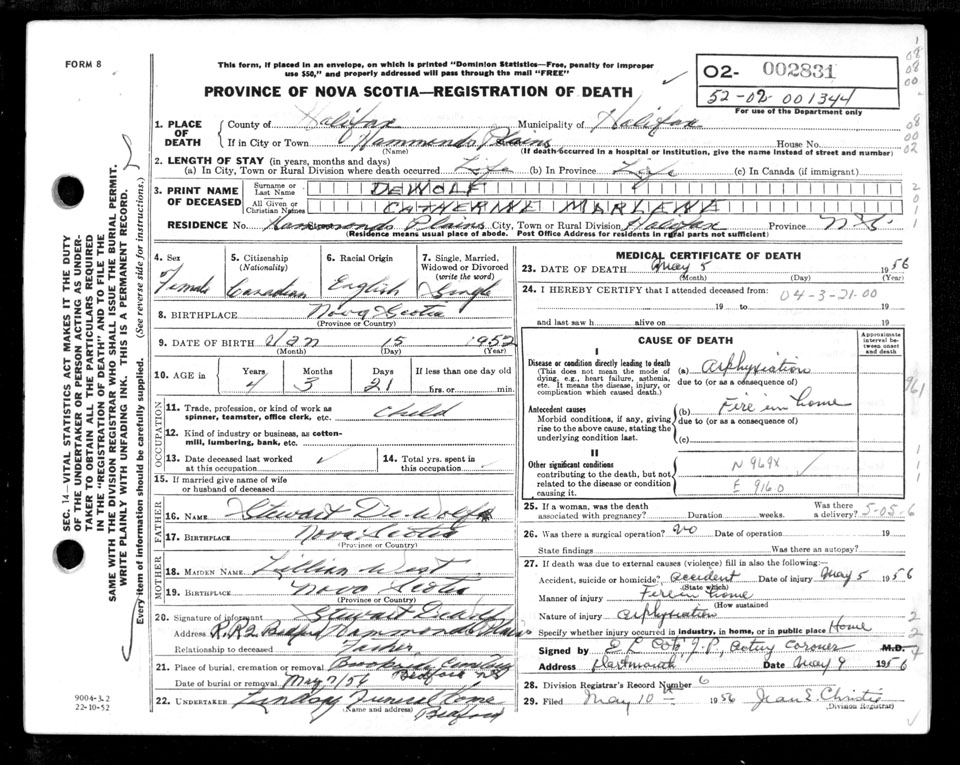 FORM 8
This form, if placed in an envelope, on which is printed "Dominion Statistics—Free, penalty for improper
use $50," and properly addressed will pass through the mail "FREE"
PROVINCE OF NOVA SCOTIA—REGISTRATION OF DEATH
02- 002831
52-02-001344
For use of the Department only
1. PLACE OF DEATH
County of Halifax Municipality of Halifax
If in City or Town Hammonds Plains House No.
(Name) (If death occurred in a hospital or institution, give the name instead of street and number)
2. LENGTH OF STAY (in years, months and days)
(a) In City, Town or Rural Division where death occurred Life (b) In Province Life (c) In Canada (if immigrant)
3. PRINT NAME OF DECEASED
Surname or Last Name DEWOLF
All Given or Christian Names CATHERINE MARLENE
RESIDENCE No. Hammonds Plains City, Town or Rural Division Halifax Province N.S.
(Residence means usual place of abode. Post Office Address for residents in rural parts not sufficient)
4. Sex
Female
5. Citizenship
(Nationality)
Canadian
6. Racial Origin
English
7. Single, Married, Widowed or Divorced
(write the word)
Single
8. BIRTHPLACE Nova Scotia
(Province or Country)
9. DATE OF BIRTH Jan 15 1952
(Month) (Day) (Year)
10. AGE in
Years Months Days If less than one day old
4 3 21 hrs. or min.
OCCUPATION
11. Trade, profession, or kind of work as
spinner, teamster, office clerk, etc. Child
12. Kind of industry or business, as cotton-
mill, lumbering, bank, etc.
13. Date deceased last worked
at this occupation
14. Total yrs. spent in
this occupation
15. If married give name of wife
or husband of deceased
FATHER
16. NAME Stewart DeWolfe
17. BIRTHPLACE Nova Scotia
(Province or Country)
MOTHER
18. MAIDEN NAME Lillian West
19. BIRTHPLACE Nova Scotia
(Province or Country)
20. Signature of informant Stewart
Address R.R.2 Bedford Hammonds Plains
Relationship to deceased Father
21. Place of burial, cremation or removal Bedford NS
Date of burial or removal May 7/56
22. UNDERTAKER Lindsay Funeral Home
(Name and address) Bedford
MEDICAL CERTIFICATE OF DEATH
23. DATE OF DEATH May 5 1956
(Month) (Day) (Year)
24. I HEREBY CERTIFY that I attended deceased from:
04-3-21-00
19 to 19
and last saw h alive on 19
CAUSE OF DEATH
Approximate interval between onset and death
I
Disease or condition directly leading to death
(This does not mean the mode of
dying, e.g., heart failure, asthenia,
etc. It means the disease, injury, or
complication which caused death.)
(a) Asphyxiation
due to (or as a consequence of)
Antecedent causes
Morbid conditions, if any, giving
rise to the above cause, stating the
underlying condition last.
(b) Fire in home
due to (or as a consequence of)
(c)
II
Other significant conditions
contributing to the death, but not
related to the disease or condition
causing it.
N 969X
E 916.0
25. If a woman, was the death
associated with pregnancy? Duration weeks. Was there
a delivery? 5-05-6
26. Was there a surgical operation? No Date of operation 19
State findings Was there an autopsy?
27. If death was due to external causes (violence) fill in also the following:
Accident, suicide or homicide? accident Date of injury May 5 1956
(State which)
Manner of injury Fire in home
(How sustained)
Nature of injury asphyxiation
Specify whether injury occurred in industry, in home, or in public place Home
Signed by Acting Coroner M.D.
Address Dartmouth Date May 9 1956
28. Division Registrar's Record Number 6
29. Filed May 10 1956 Jean E. Christie
(Division Registrar)
SEC. 14—VITAL STATISTICS ACT MAKES IT THE DUTY
OF THE UNDERTAKER OR PERSON ACTING AS UNDER-
TAKER TO OBTAIN ALL THE PARTICULARS REQUIRED
IN THE "REGISTRATION OF DEATH" AND TO FILE THE
SAME WITH THE DIVISION REGISTRAR WHO SHALL ISSUE THE BURIAL PERMIT.
WRITE PLAINLY WITH UNFADING INK. THIS IS A PERMANENT RECORD.
Every item of information should be carefully supplied. (See reverse side for instructions.)
9004-3.2
22-10-52